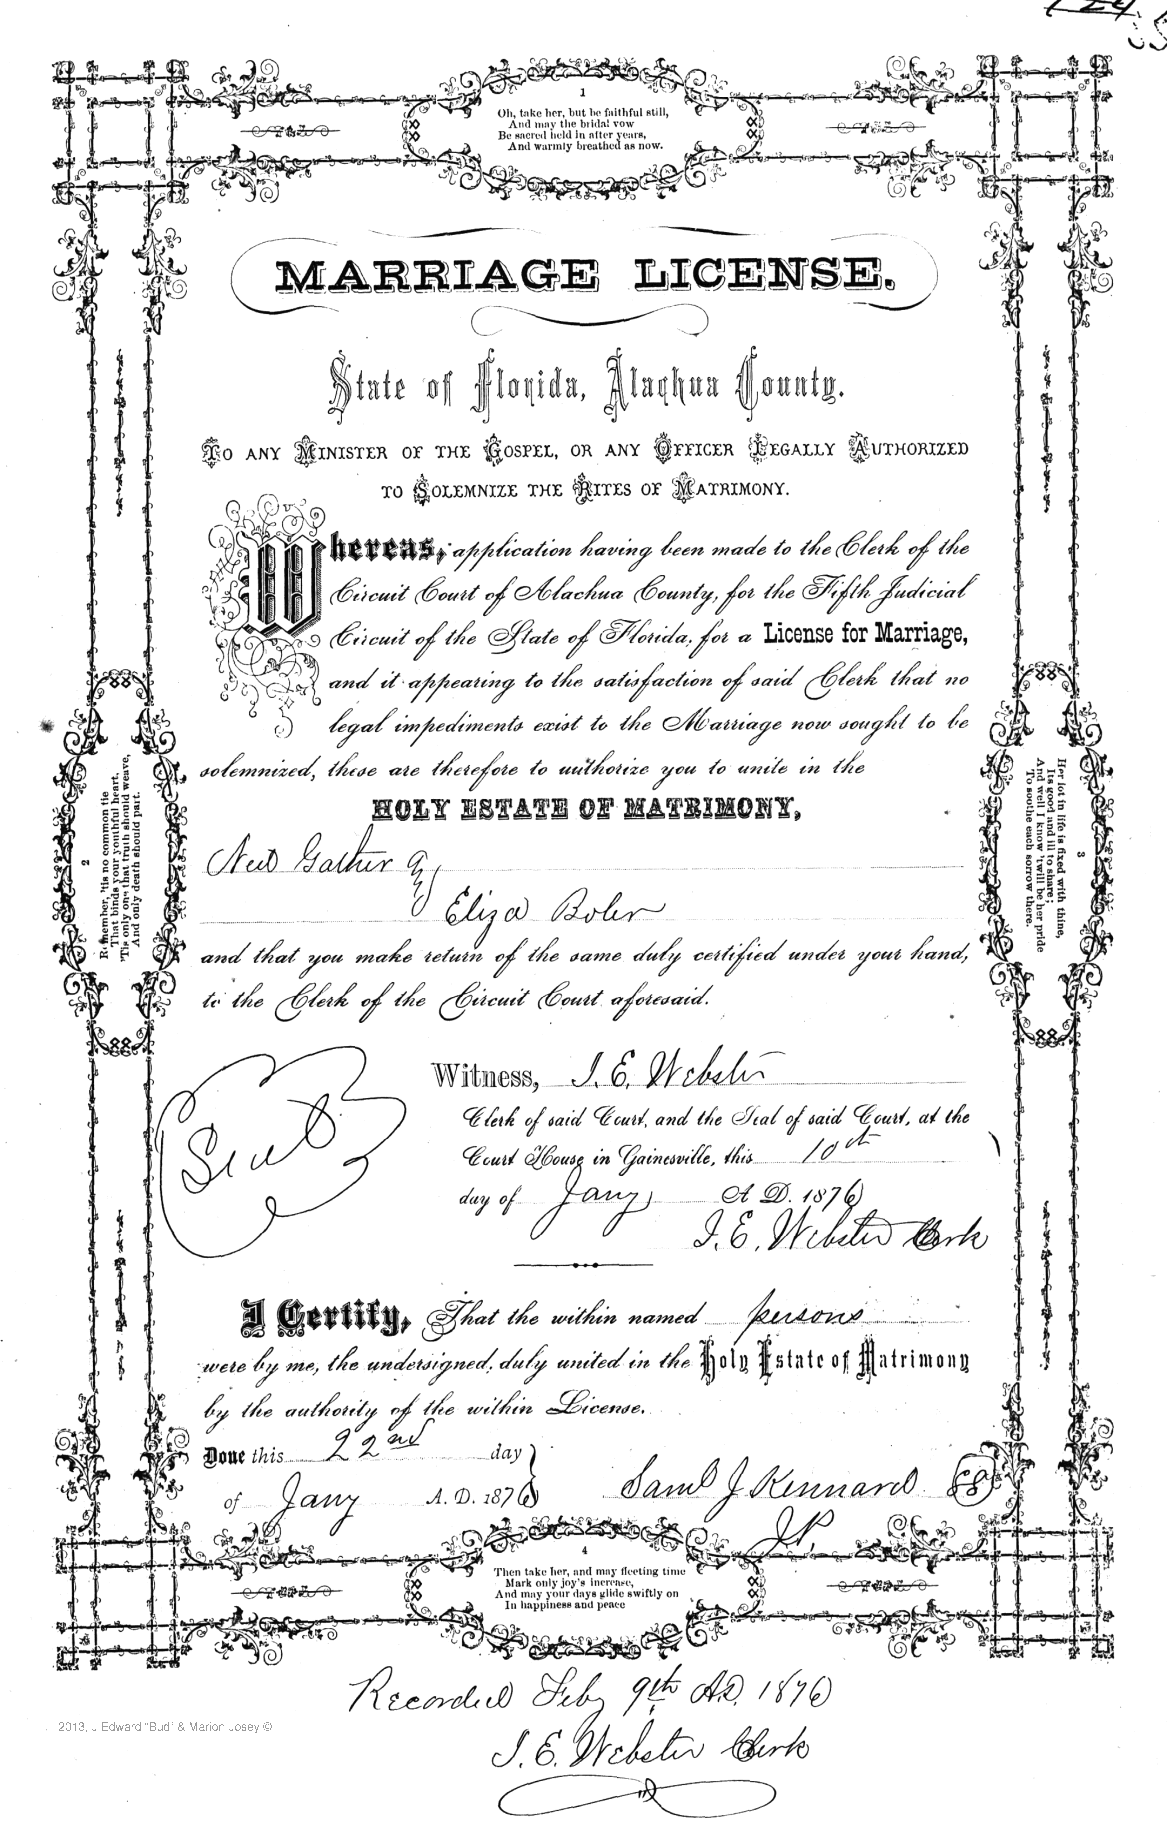 1
Oh, take her, but be faithful still,
And may the bridal vow
Be sacred held in after years,
And warmly breathed as now.
MARRIAGE LICENSE.
State of Florida, Alachua County.
TO ANY MINISTER OF THE GOSPEL, OR ANY OFFICER LEGALLY AUTHORIZED
TO SOLEMNIZE THE RITES OF MATRIMONY.
Whereas, application having been made to the Clerk of the
Circuit Court of Alachua County, for the Fifth Judicial
Circuit of the State of Florida, for a License for Marriage,
and it appearing to the satisfaction of said Clerk that no
legal impediments exist to the Marriage now sought to be
solemnized, these are therefore to authorize you to unite in the
HOLY ESTATE OF MATRIMONY,
Eliza Boler
and that you make return of the same duly certified under your hand,
to the Clerk of the Circuit Court aforesaid.
2
Remember, 'tis no common tie
That binds your youthful heart,
'Tis only one that truth should weave,
And only death should part.
3
Her lot in life is fixed with thine,
Its good and ill to share;
And well I know 'twill be her pride
To soothe each sorrow there.
Witness, I. E. Webster
Clerk of said Court, and the Seal of said Court, at the
Court House in Gainesville, this 10th
day of Jany A. D. 1876
I. E. Webster Clerk
Seal
I Certify, That the within named persons
were by me, the undersigned, duly united in the Holy Estate of Matrimony
by the authority of the within License.
Done this 22nd day
of Jany A. D. 1876
Saml J Kennard
J.P.
4
Then take her, and may fleeting time
Mark only joy's increase,
And may your days glide swiftly on
In happiness and peace
Recorded Feby 9th A.D. 1876
I. E. Webster Clerk
2013, J Edward "Bud" & Marion Josey ©